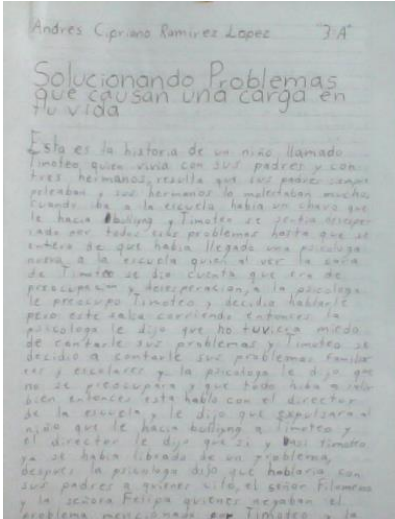 Andres Cipriano Ramirez Lopez "3·A"
Solucionando Problemas
que causan una carga en
tu vida
Esta es la historia de un niño llamado
Timoteo, quien vivia con sus padres y con
tres hermanos, resulta que sus padres siempre
peleaban y sus hermanos lo molestaban mucho,
cuando iba a la escuela había un chavo que
le hacia bullying y Timoteo se sentia
por todos estos problemas hasta que se
entero de que habia llegado una psicologa
nueva a la escuela quien al ver la cara
de Timoteo se dio cuenta que era de
preocupación y desesperación, a la psicologa
le preocupo Timoteo y decidio hablarle
pero este saba corriendo entonces la
psicologa le dijo que no tuviera miedo
de contarle sus problemas y Timoteo se
decidió a contarle sus problemas familia
res y escolares y la psicologa le dijo que
no se preocupara y que todo hiba a salir
bien entonces esta hablo con el director
de la escuela y le dijo que expulsara al
niño que le hacia bulliyng a Timoteo y
el director le dijo que si y asi Timoteo
ya se habia librado de un problema,
despues la psicologa dijo que hablaria con
sus padres a quienes cito, el señor Filomeno
y la señora Felipa quienes negaban el
problema mencionado por Timoteo y la